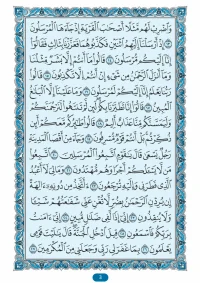 وَٱضْرِبْ لَهُم مَّثَلًا أَصْحَٰبَ ٱلْقَرْيَةِ إِذْ جَآءَهَا ٱلْمُرْسَلُونَ
﴿١٣﴾ إِذْ أَرْسَلْنَآ إِلَيْهِمُ ٱثْنَيْنِ فَكَذَّبُوهُمَا فَعَزَّزْنَا بِثَالِثٍ فَقَالُوٓا۟
إِنَّآ إِلَيْكُم مُّرْسَلُونَ ﴿١٤﴾ قَالُوا۟ مَآ أَنتُمْ إِلَّا بَشَرٌ مِّثْلُنَا
وَمَآ أَنزَلَ ٱلرَّحْمَٰنُ مِن شَىْءٍ إِنْ أَنتُمْ إِلَّا تَكْذِبُونَ ﴿١٥﴾ قَالُوا۟
رَبُّنَا يَعْلَمُ إِنَّآ إِلَيْكُمْ لَمُرْسَلُونَ ﴿١٦﴾ وَمَا عَلَيْنَآ إِلَّا ٱلْبَلَٰغُ
ٱلْمُبِينُ ﴿١٧﴾ قَالُوٓا۟ إِنَّا تَطَيَّرْنَا بِكُمْ لَئِن لَّمْ تَنتَهُوا۟ لَنَرْجُمَنَّكُمْ
وَلَيَمَسَّنَّكُم مِّنَّا عَذَابٌ أَلِيمٌ ﴿١٨﴾ قَالُوا۟ طَٰٓئِرُكُم مَّعَكُمْ أَئِن
ذُكِّرْتُم بَلْ أَنتُمْ قَوْمٌ مُّسْرِفُونَ ﴿١٩﴾ وَجَآءَ مِنْ أَقْصَا ٱلْمَدِينَةِ
رَجُلٌ يَسْعَىٰ قَالَ يَٰقَوْمِ ٱتَّبِعُوا۟ ٱلْمُرْسَلِينَ ﴿٢٠﴾ ٱتَّبِعُوا۟
مَن لَّا يَسْـَٔلُكُمْ أَجْرًا وَهُم مُّهْتَدُونَ ﴿٢١﴾ وَمَا لِىَ لَآ أَعْبُدُ
ٱلَّذِى فَطَرَنِى وَإِلَيْهِ تُرْجَعُونَ ﴿٢٢﴾ ءَأَتَّخِذُ مِن دُونِهِۦٓ ءَالِهَةً
إِن يُرِدْنِ ٱلرَّحْمَٰنُ بِضُرٍّ لَّا تُغْنِ عَنِّى شَفَٰعَتُهُمْ شَيْـًٔا
وَلَا يُنقِذُونِ ﴿٢٣﴾ إِنِّىٓ إِذًا لَّفِى ضَلَٰلٍ مُّبِينٍ ﴿٢٤﴾ إِنِّىٓ ءَامَنتُ
بِرَبِّكُمْ فَٱسْمَعُونِ ﴿٢٥﴾ قِيلَ ٱدْخُلِ ٱلْجَنَّةَ قَالَ يَٰلَيْتَ قَوْمِى
يَعْلَمُونَ ﴿٢٦﴾ بِمَا غَفَرَ لِى رَبِّى وَجَعَلَنِى مِنَ ٱلْمُكْرَمِينَ ﴿٢٧﴾
3